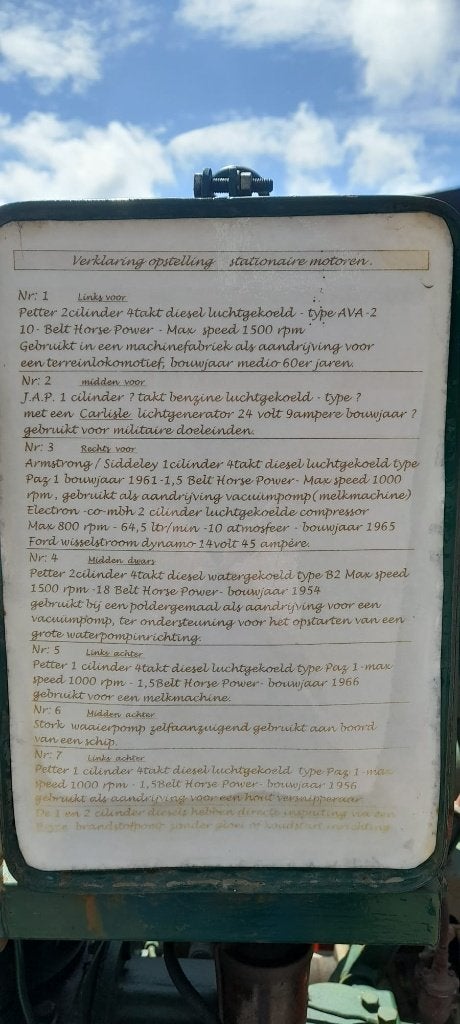 Verklaring opstelling stationaire motoren.
Nr: 1 Links voor
Petter 2cilinder 4takt diesel luchtgekoeld - type AVA-2
10- Belt Horse Power - Max speed 1500 rpm
Gebruikt in een machinefabriek als aandrijving voor
een terreinlokomotief, bouwjaar medio 60er jaren.
Nr: 2 midden voor
J.A.P. 1 cilinder ? takt benzine luchtgekoeld - type ?
met een Carlisle lichtgenerator 24 volt 9ampere bouwjaar ?
gebruikt voor militaire doeleinden.
Nr: 3 Rechts voor
Armstrong / Siddeley 1cilinder 4takt diesel luchtgekoeld type
Paz 1 bouwjaar 1961-1,5 Belt Horse Power- Max speed 1000
rpm, gebruikt als aandrijving vacuümpomp(melkmachine)
Electron -co-mbh 2 cilinder luchtgekoelde compressor
Max 800 rpm - 64,5 ltr/min -10 atmosfeer - bouwjaar 1965
Ford wisselstroom dynamo 14volt 45 ampère.
Nr: 4 Midden dwars
Petter 2cilinder 4takt diesel watergekoeld type B2 Max speed
1500 rpm -18 Belt Horse Power- bouwjaar 1954
gebruikt bij een poldergemaal als aandrijving voor een
vacuümpomp, ter ondersteuning voor het opstarten van een
grote waterpompinrichting.
Nr: 5 Links achter
Petter 1 cilinder 4takt diesel luchtgekoeld type Paz 1-max
speed 1000 rpm - 1,5Belt Horse Power- bouwjaar 1966
gebruikt voor een melkmachine.
Nr: 6 Midden achter
Stork waaierpomp zelfaanzuigend gebruikt aan boord
van een schip.
Nr: 7 Links achter
Petter 1 cilinder 4takt diesel luchtgekoeld type Paz 1-max
speed 1000 rpm - 1,5Belt Horse Power- bouwjaar 1956
gebruikt als aandrijving voor een hout versnipperaar
De 1 en 2 cilinder diesels hebben directe inspuiting via een
brandstofpomp zonder gloei of koudstart inrichting